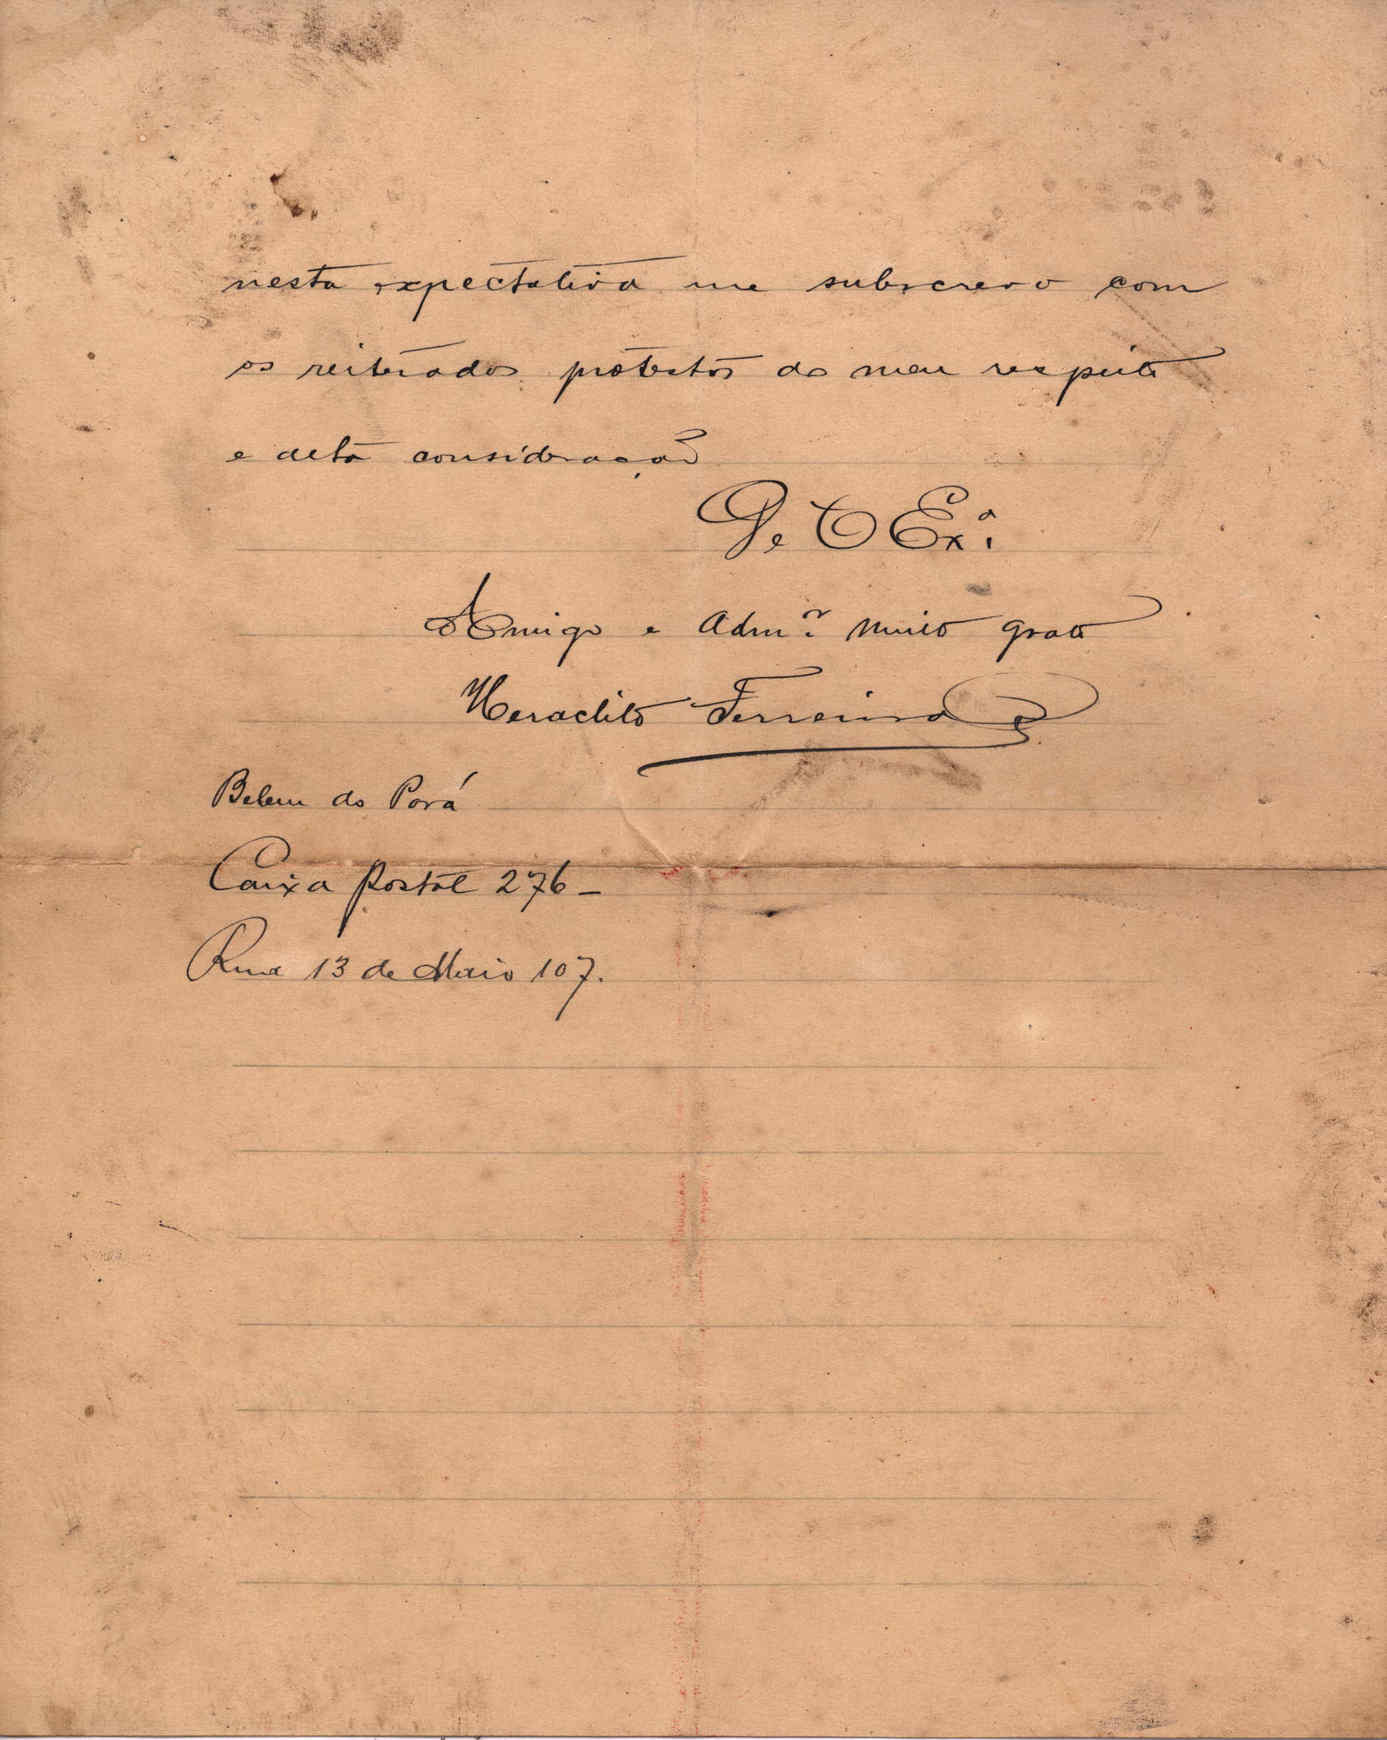 nesta expectativa me subscrevo com
os reiterados protestos do meu respeito
e alta consideração
De V Exª
Amigo e Admºr muito grato
Heraclito Ferreira
Belem do Pará
Caixa Postal 276 –
Rua 13 de Maio 107.